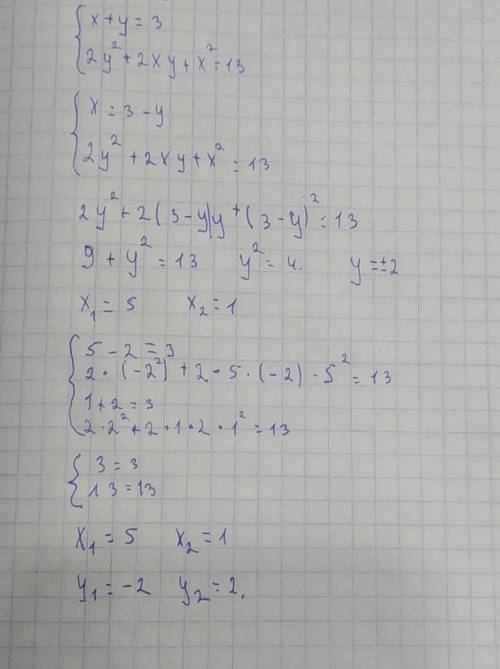 x+y=3
2y²+2xy+x²=13
x=3-y
2y²+2xy+x²=13
2y²+2(3-y)y+(3-y)²=13
9+y²=13 y²=4. y=±2
x₁=5 x₂=1
5-2=3
2·(-2²)+2·5·(-2)·5²=13
1+2=3
2·2²+2·1·2·1²=13
3=3
13=13
x₁=5 x₂=1
y₁=-2 y₂=2.